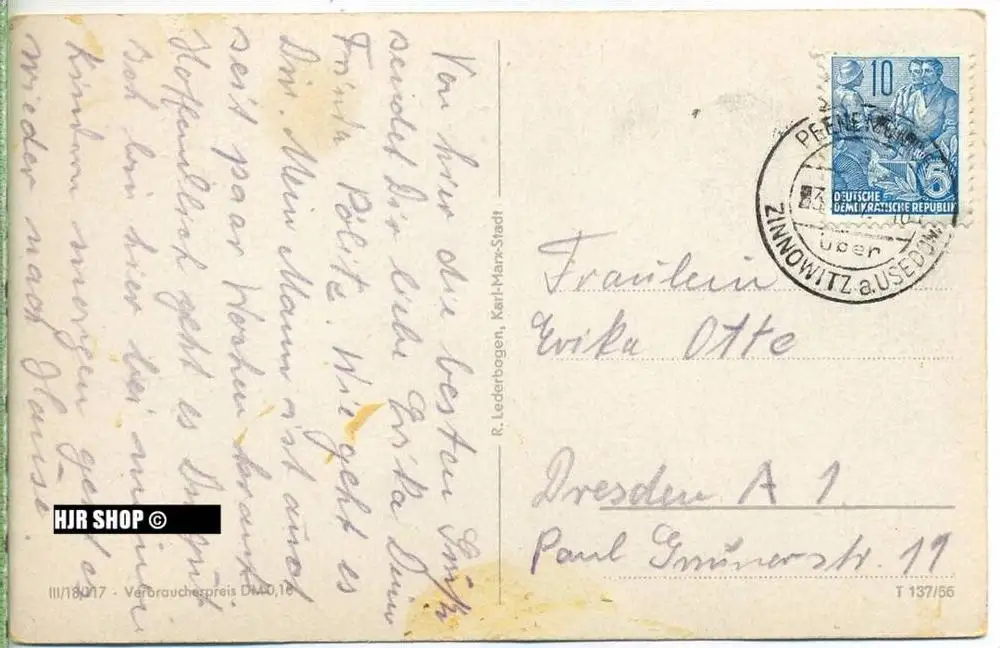 Von hier die besten Grüße
sendet Dir liebe Erika Deine
Frieda Pölitz. Wie geht es
Dir. Mein Mann ist auch
seit paar Wochen krank
Hoffentlich geht es Dir gut
Ich bin hier bei meinen
Kindern morgen geht es
wieder nach Hause.
R. Lederbogen, Karl-Marx-Stadt
10
DEUTSCHE
DEMOKRATISCHE REPUBLIK
über
ZINNOWITZ a. USEDOM
Fräulein
Erika Otte
Dresden A 1.
Paul Grunerstr. 19
HJR SHOP ©
III/18/017 - Verbraucherpreis DM 0,16
T 137/56